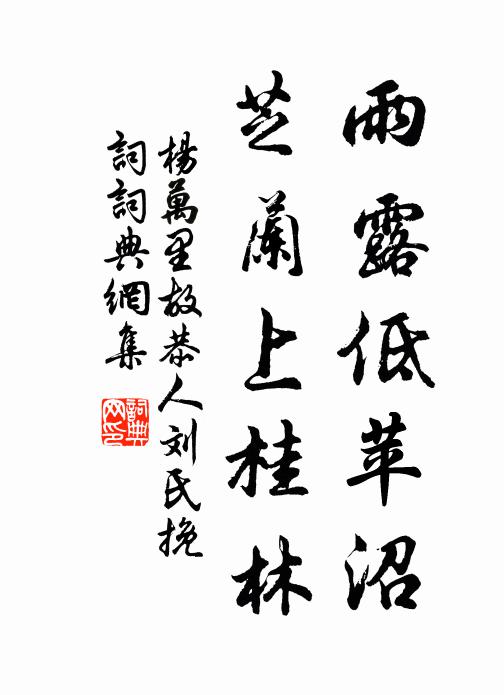 雨露低苹沼
芝蘭上桂林
楊萬里故恭人刘氏挽
詞詞典網集
詞典
网印